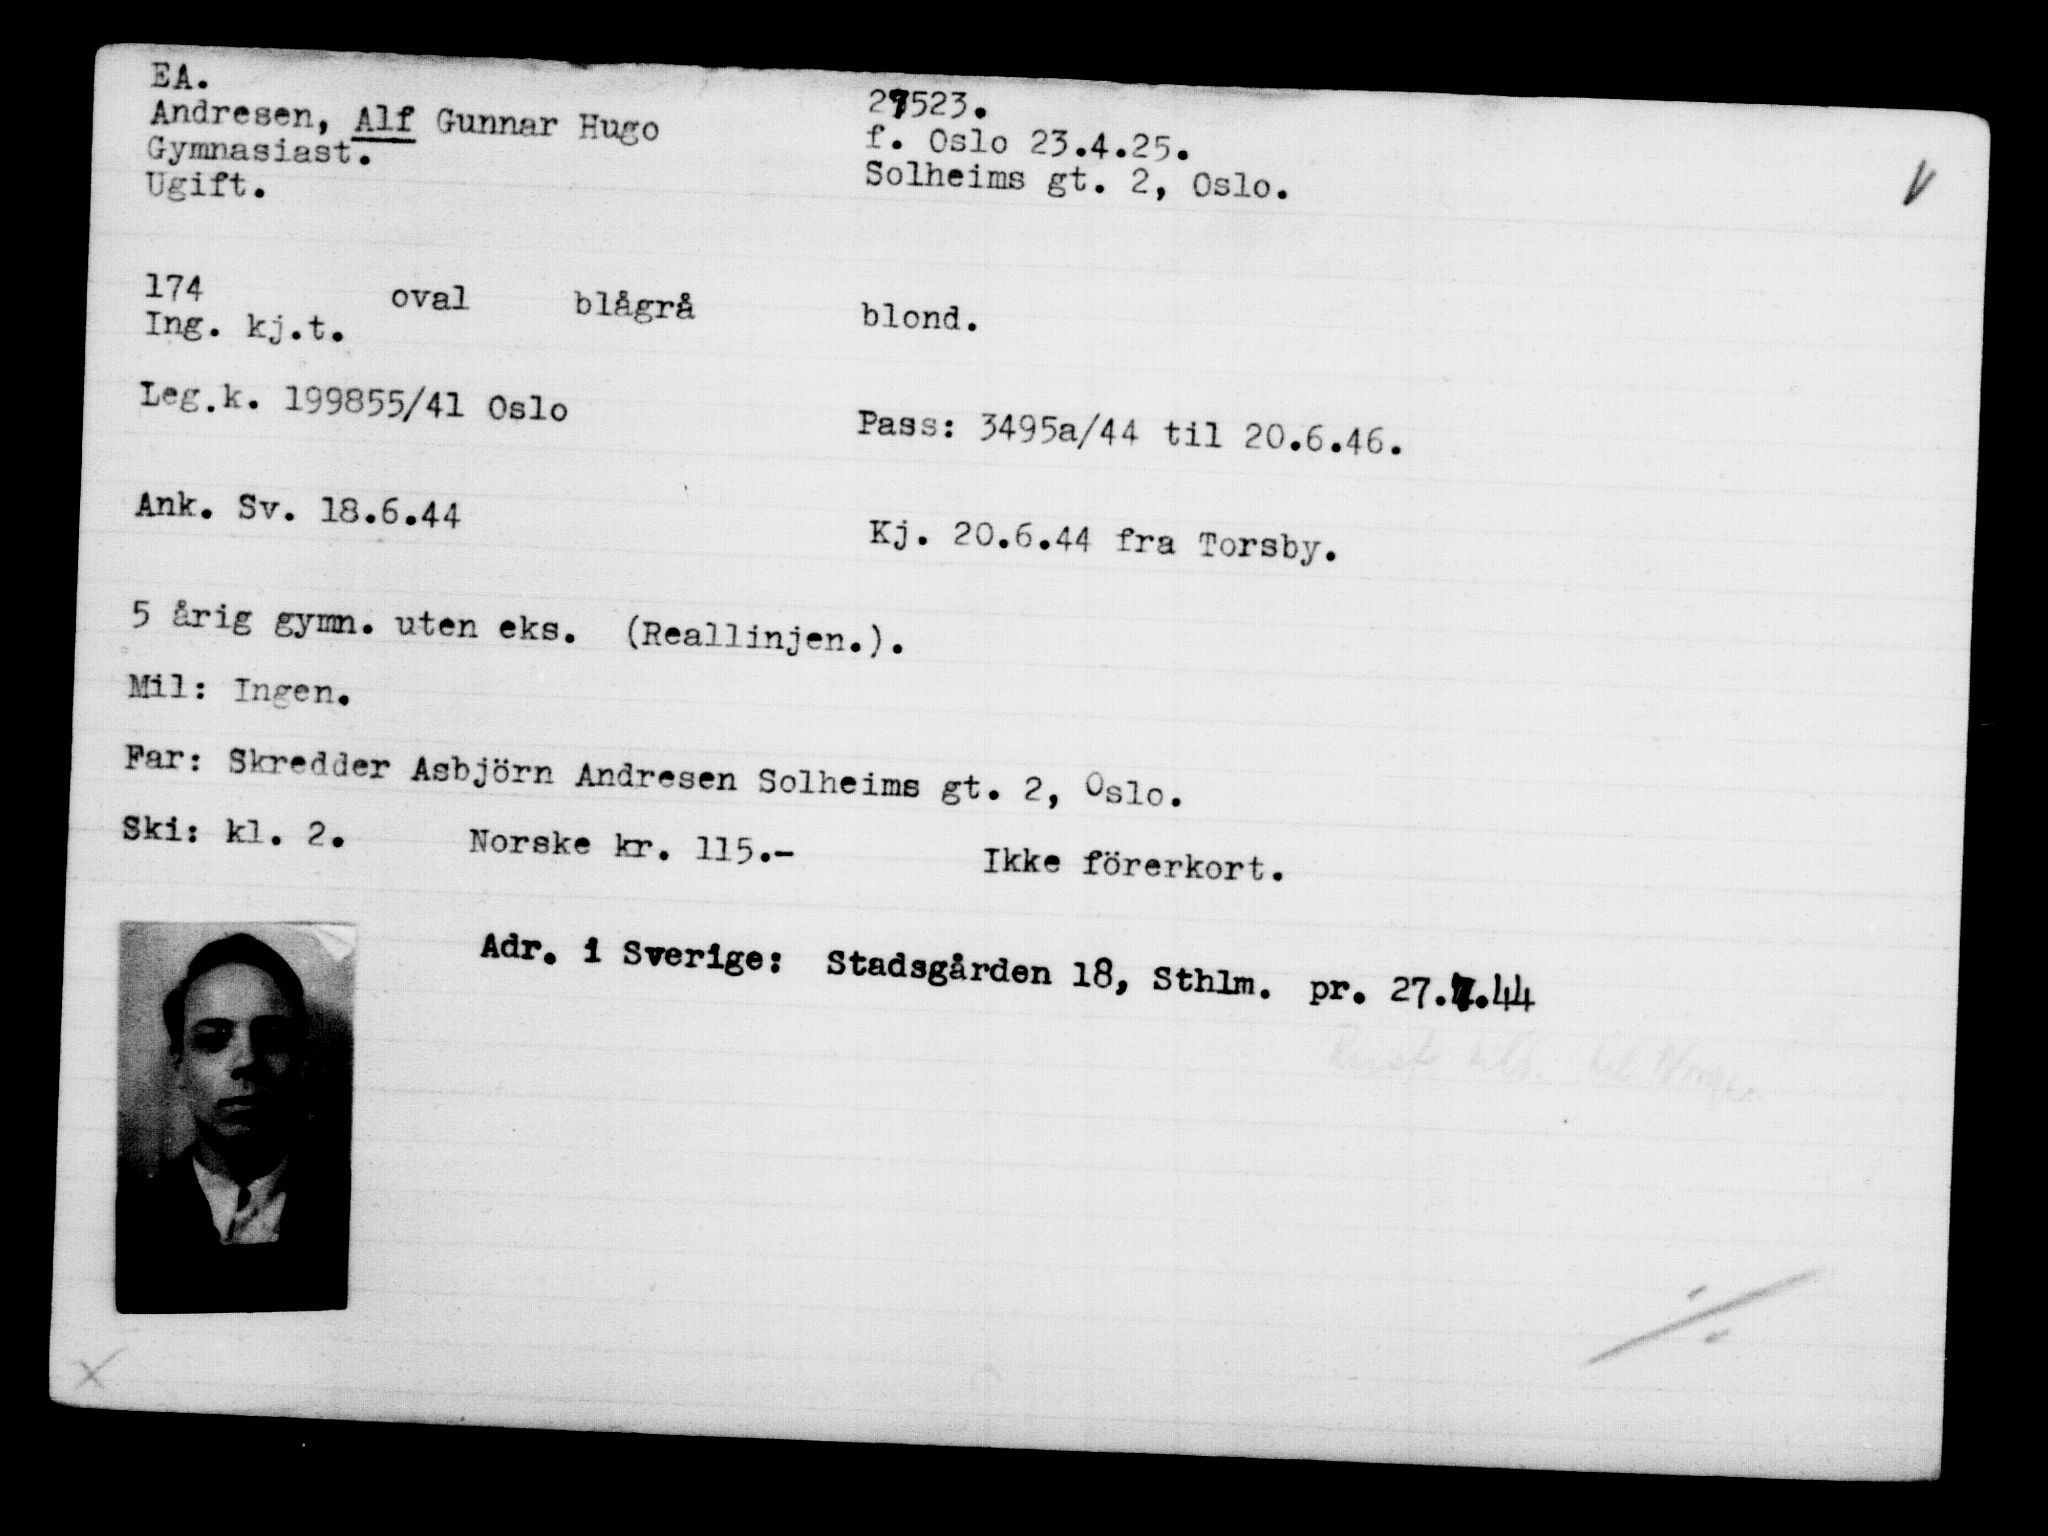 EA.
Andresen, Alf Gunnar Hugo
Gymnasiast.
Ugift.
29523.
f. Oslo 23.4.25.
Solheims gt. 2, Oslo.
174 oval blågrå blond.
Ing. kj.t.
Leg.k. 199855/41 Oslo Pass: 3495a/44 til 20.6.46.
Ank. Sv. 18.6.44 Kj. 20.6.44 fra Torsby.
5 årig gymn. uten eks. (Reallinjen.).
Mil: Ingen.
Far: Skredder Asbjörn Andresen Solheims gt. 2, Oslo.
Ski: kl. 2. Norske kr. 115.- Ikke förerkort.
Adr. i Sverige: Stadsgården 18, Sthlm. pr. 27.7.44